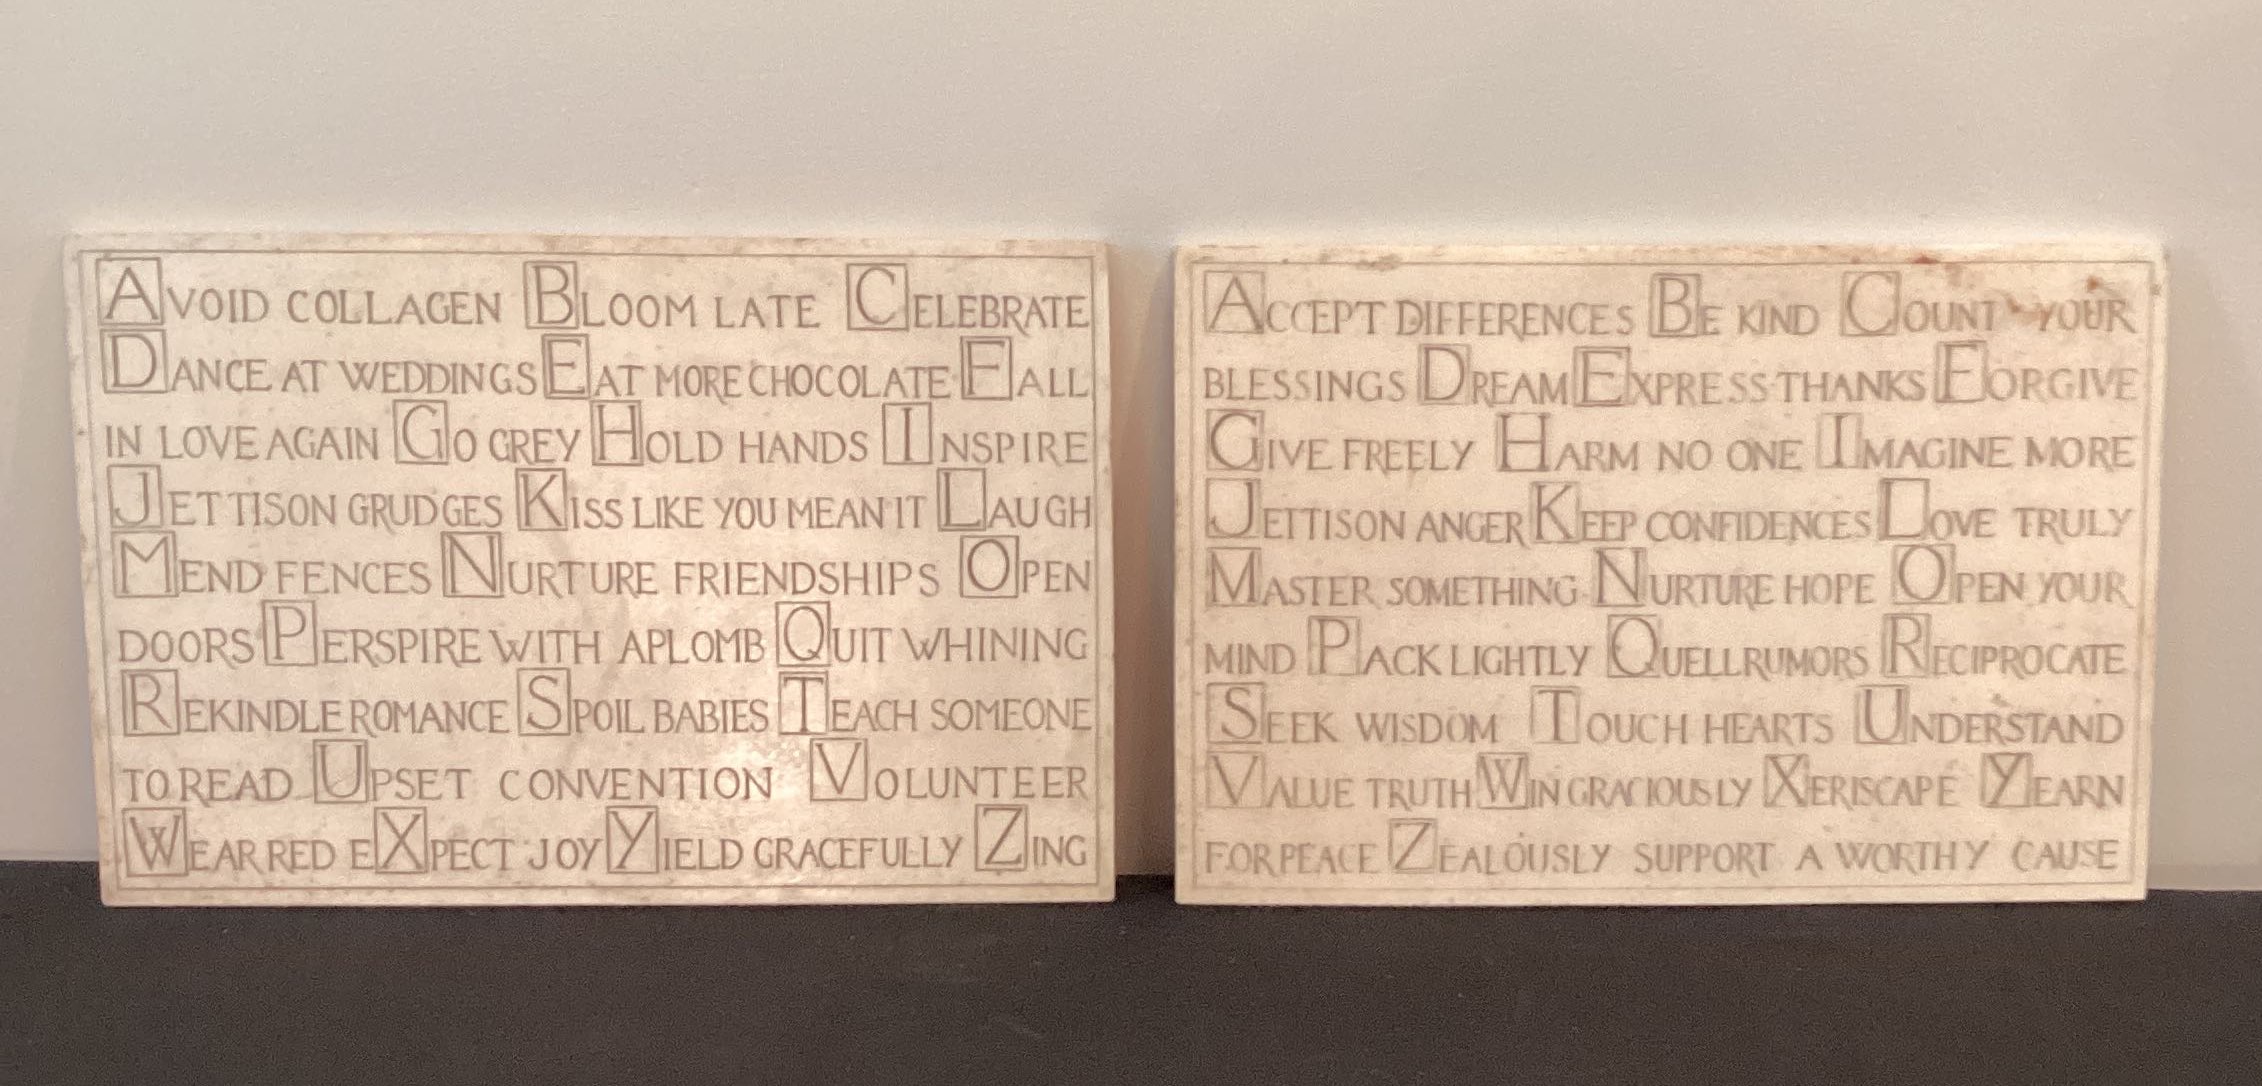 AVOID COLLAGEN BLOOM LATE CELEBRATE
DANCE AT WEDDINGS EAT MORE CHOCOLATE FALL
IN LOVE AGAIN GO GREY HOLD HANDS INSPIRE
JETTISON GRUDGES KISS LIKE YOU MEAN IT LAUGH
MEND FENCES NURTURE FRIENDSHIPS OPEN
DOORS PERSPIRE WITH APLOMB QUIT WHINING
REKINDLE ROMANCE SPOIL BABIES TEACH SOMEONE
TO READ UPSET CONVENTION VOLUNTEER
WEAR RED EXPECT JOY YIELD GRACEFULLY ZING
ACCEPT DIFFERENCES BE KIND COUNT YOUR
BLESSINGS DREAM EXPRESS THANKS FORGIVE
GIVE FREELY HARM NO ONE IMAGINE MORE
JETTISON ANGER KEEP CONFIDENCES LOVE TRULY
MASTER SOMETHING NURTURE HOPE OPEN YOUR
MIND PACK LIGHTLY QUELL RUMORS RECIPROCATE
SEEK WISDOM TOUCH HEARTS UNDERSTAND
VALUE TRUTH WIN GRACIOUSLY XERISCAPE YEARN
FOR PEACE ZEALOUSLY SUPPORT A WORTHY CAUSE